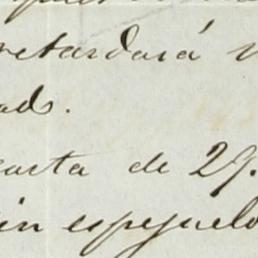 retardará
ad.
carta de 29.
in espejuelo